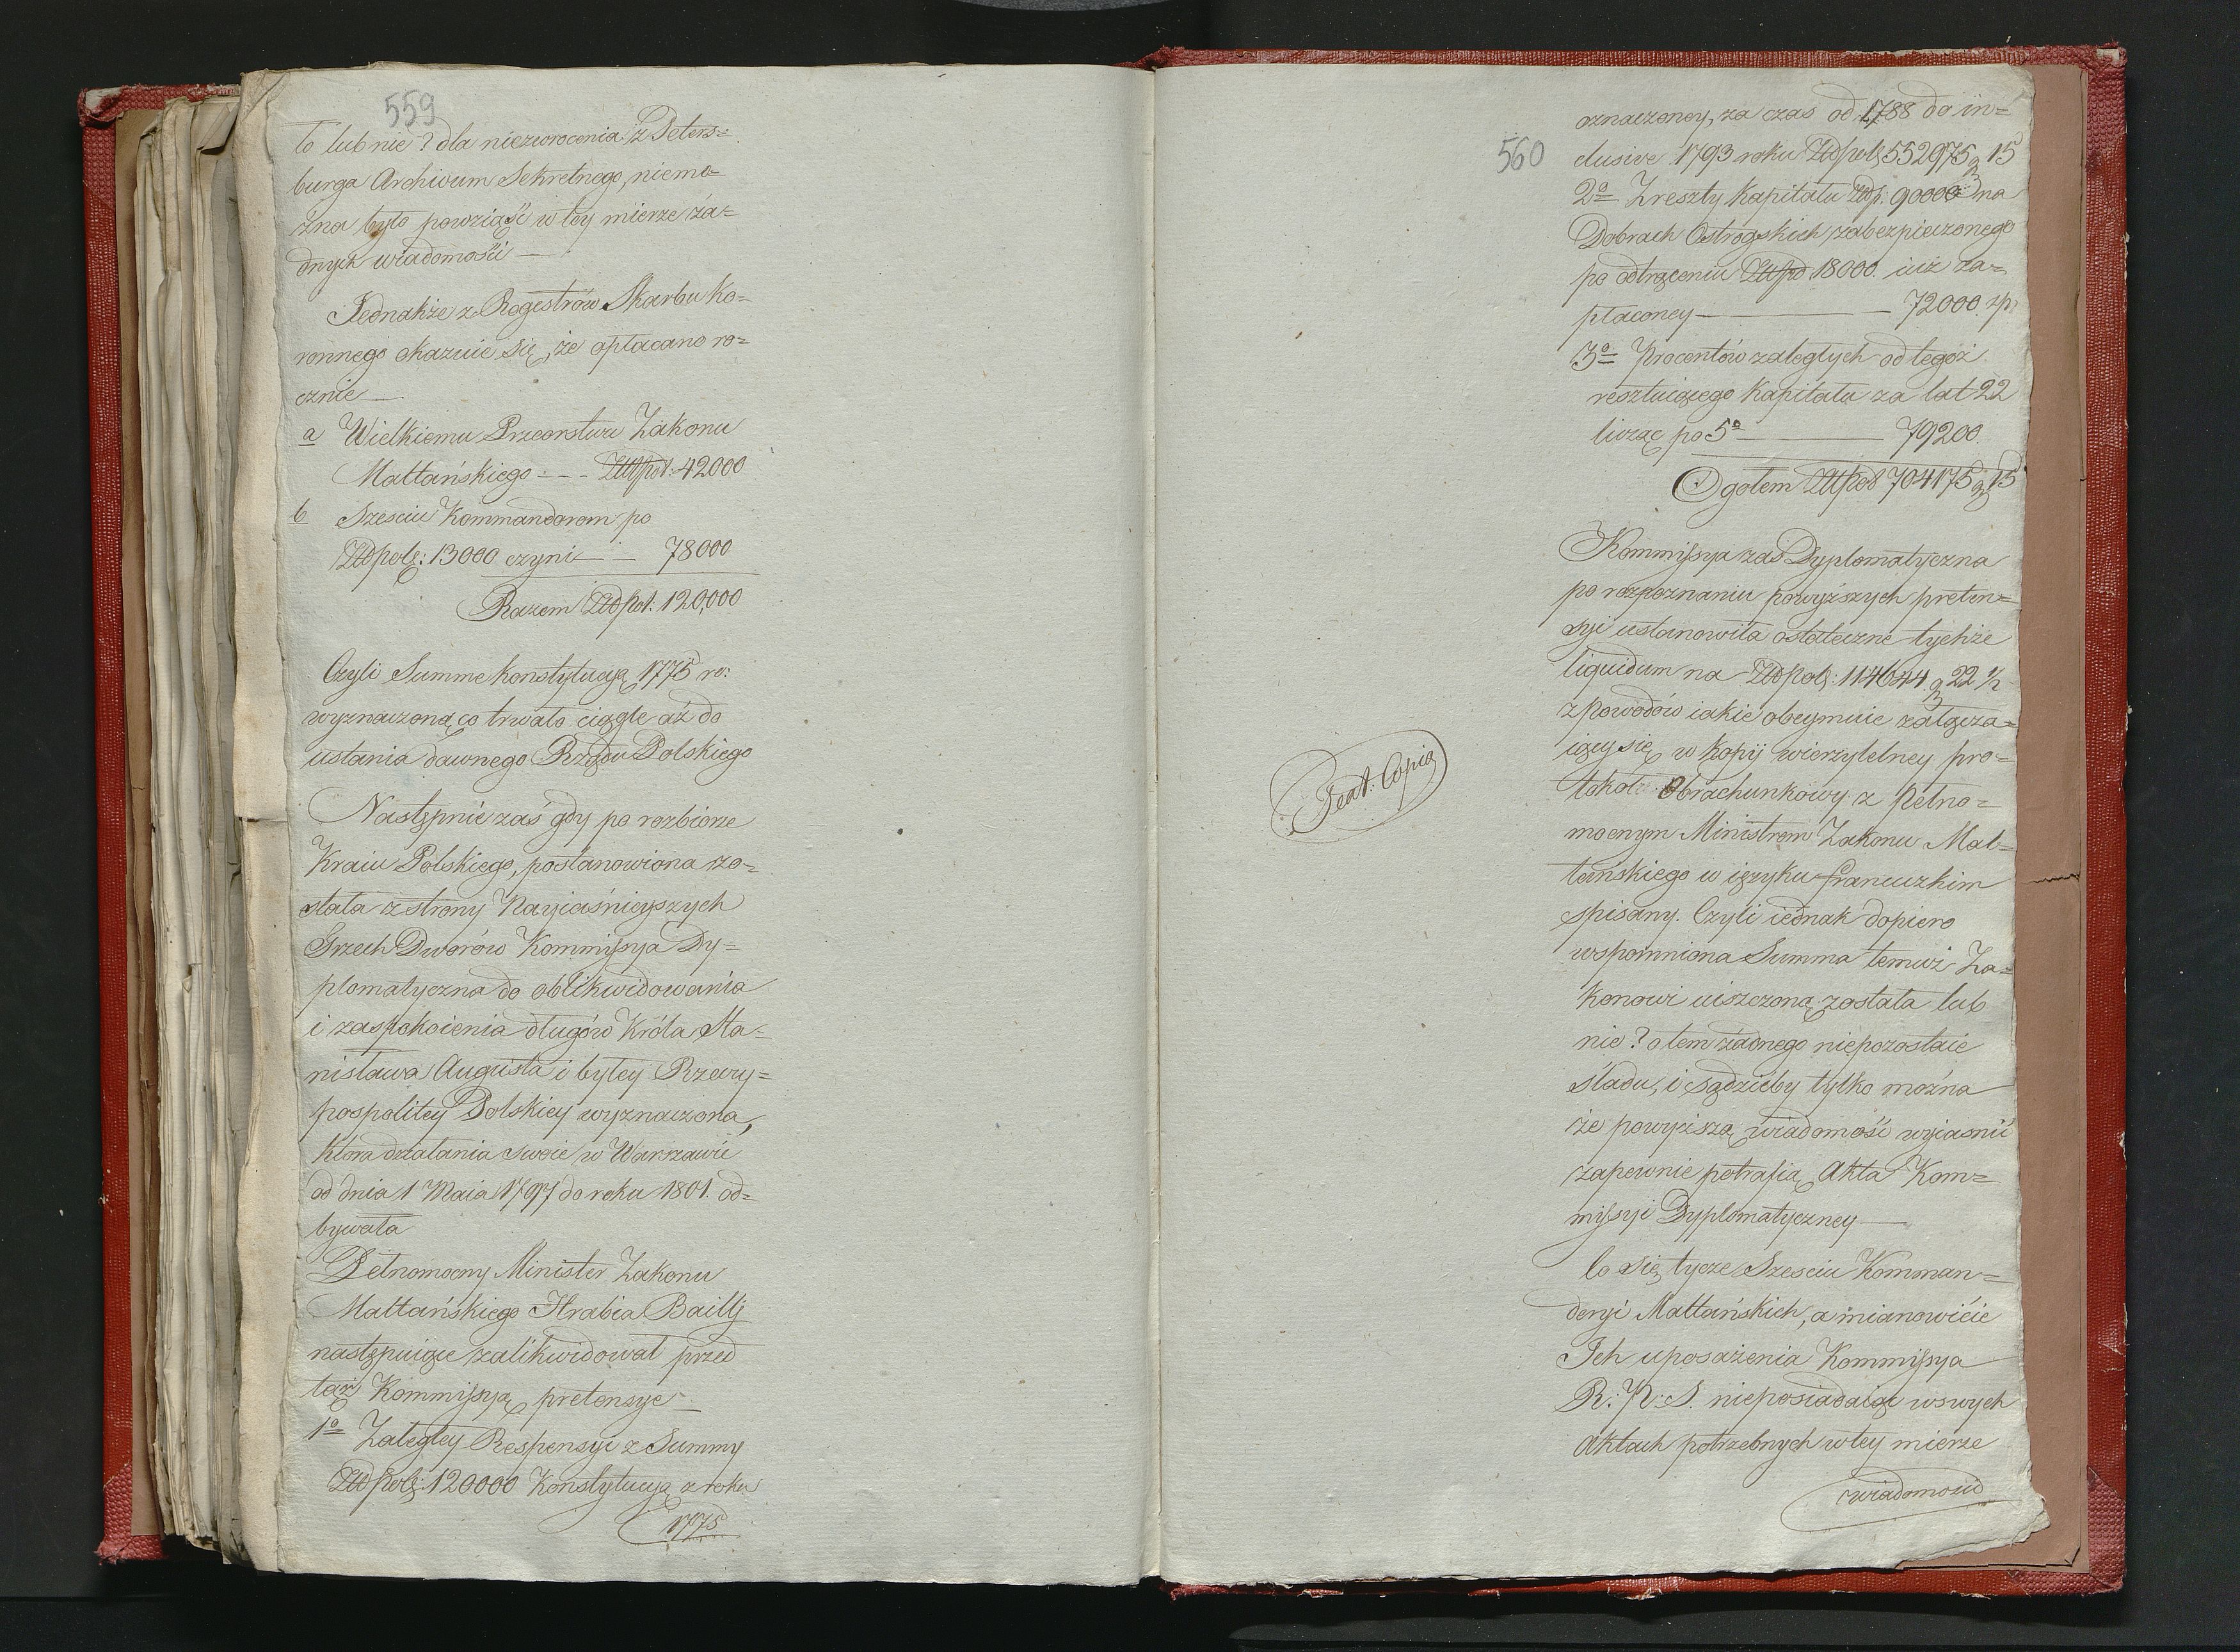 559
to lub nie? dla niezwrocenia z Peters=
burga Archivum Sekretnego, niemo=
żna było powziąść w tey mierze ża=
dnych wiadomości —
Jednakże z Regestrów Skarbu Ko=
ronnego okazuie się, że opłacano ro=
cznie —
a Wielkiemu Przeorstwu Zakonu
Maltańskiego - - - Złtpol: 42000
b Szesciu Kommandorom po
Złtpols: 13000 czyni — — 78000
Razem Złtpol. 120,000
Czyli Summę konstytucyą 1775 ro:
wyznaczoną, co trwało ciągle aż do
ustania dawnego Rządu Polskiego
Następnie zaś gdy po rozbiorze
Kraiu Polskiego, postanowiona zo=
stała z strony Nayiaśnieyszych
Trzech Dworów Kommissya Dy=
plomatyczna do oblikwidowania
i zaspokoienia długów Króla Sta=
nisława Augusta i byłey Rzeczy=
pospolitey Polskiey wyznaczona,
która działania swoie w Warszawie
od dnia 1 Maia 1797 do roku 1801. od=
bywała
Pełnomocny Minister Zakonu
Maltańskiego Hrabia Bailly
następuiące zalikwidował przed
taż Kommissyą pretensye —
1o Zaległey Respensyi z Summy
Złtpols: 120000 Konstytucyą z roku
1775
560
oznaczoney, za czas od 1788 do in=
clusive 1793 roku Złtpols 552975 g 15
2o Z reszty Kapitału Złtp. 90000 na
Dobrach Ostrogskich zabezpieczonego
po odtrąceniu Złtpo 18000. iuż za=
płaconey — — 72000 zp
3o Procentów zaległych od tegoż
resztuiącego Kapitału za lat 22
licząc po 5o — 79200.
Ogołem Złtpol 704175 g 15
Kommissya zas Dyplomatyczna
po rozpoznaniu powyższych preten=
syi ustanowiła ostateczne tychże
liquidum na Złtpols: 114644 g 22 1/2
z powodów iakie obeymuie załącza=
iący się w kopij wierzytelney pro=
tokoł Obrachunkowy z Pełno=
mocnym Ministrem Zakonu Mal=
tańskiego w ięzyku francuzkim
spisany. Czyli iednak dopiero
wspomniona Summa temuż Za=
konowi uiszczoną została lub
nie? o tem żadnego niepozostaie
śladu, i sądzićby tylko można
że powyższą wiadomość wyiasnić
zapewnie potrafią Akta Kom=
missyi Dyplomatyczney —
Co się tycze Szesciu Komman=
deryi Maltańskich, a mianowicie
Ich uposażenia Kommissya
R: P: S. nieposiadaiąc w swych
Aktach potrzebnych w tey mierze
wiadomości